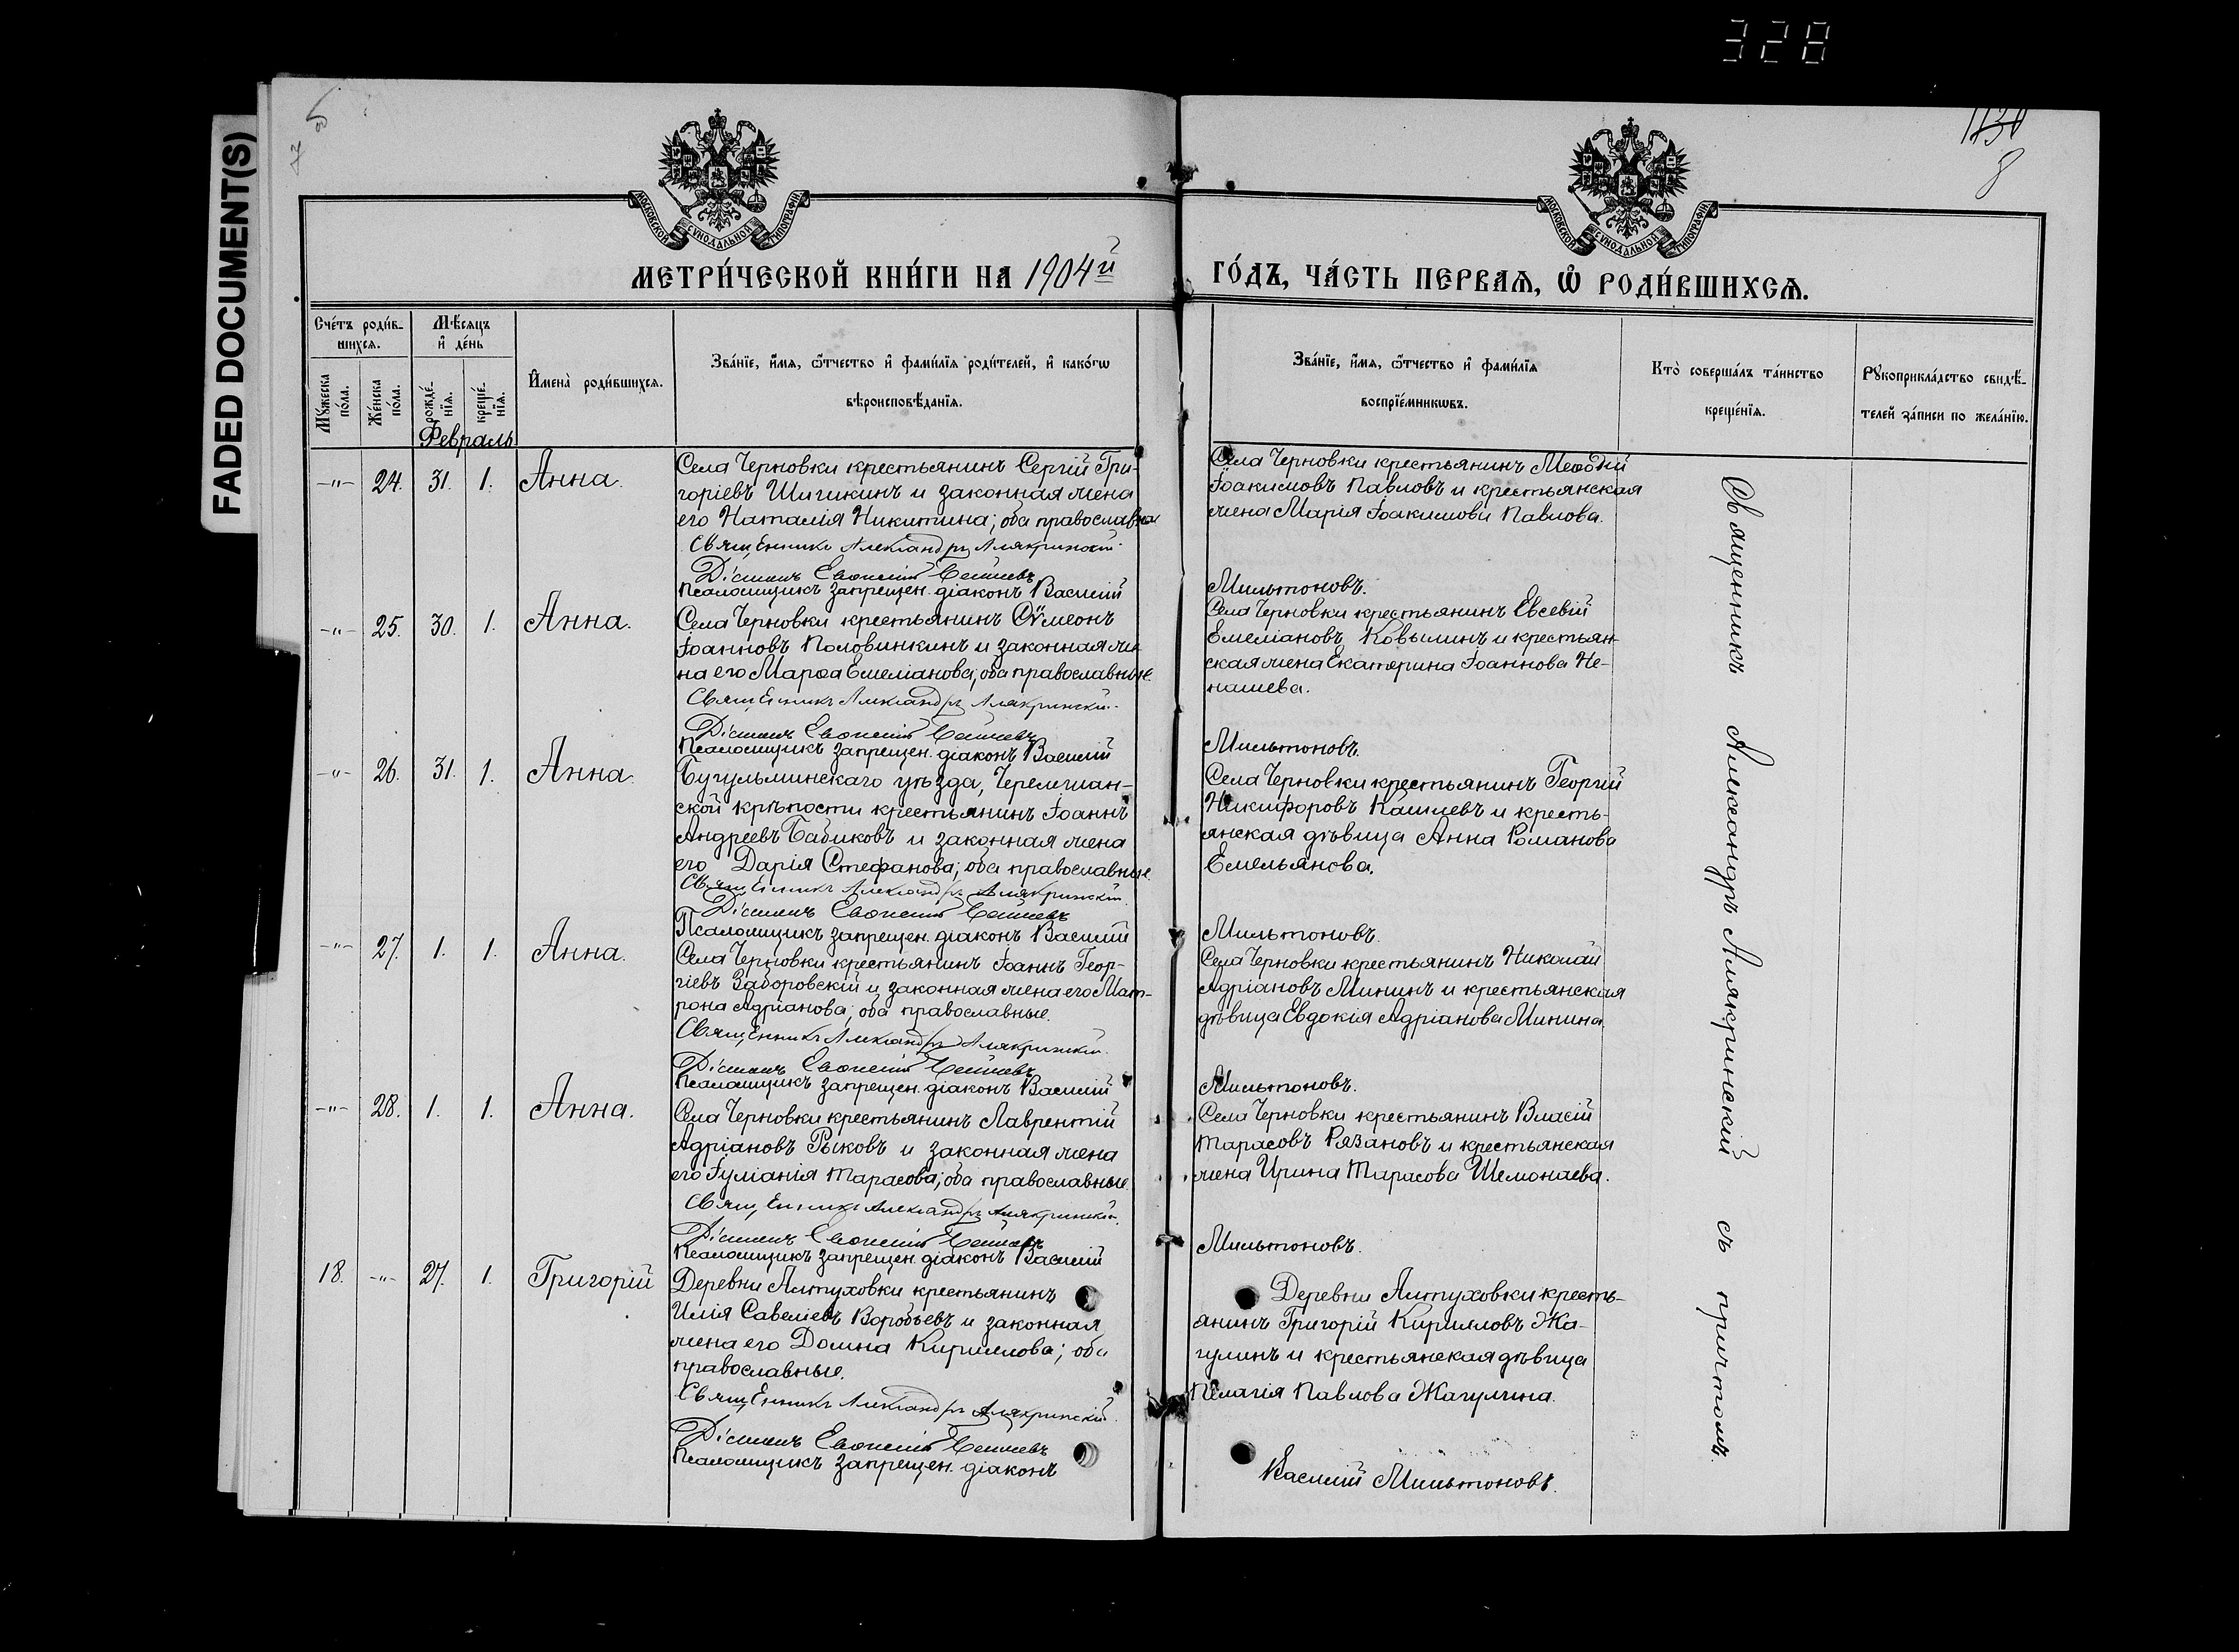 328
FADED DOCUMENT(S)
1130
8
7
МОСКОВСКОЙ СѴНОДАЛЬНОЙ ТИПОГРАФІИ
МОСКОВСКОЙ СѴНОДАЛЬНОЙ ТИПОГРАФІИ
МЕТРИ́ЧЕСКОЙ КНИ́ГИ НА 1904й
ГО́ДЪ, ЧА́СТЬ ПЕРВАѦ, Ѡ҆ РОДИ́ВШИХСѦ.
Сче́тъ роди́в-
шихсѧ.
Мꙋ́жеска по́ла.
Же́нска по́ла.
Мѣ́сѧцъ
и҆ де́нь
рожде́-
нїѧ.
креще́-
нїѧ.
И҆мена̀ роди́вшихсѧ.
Зва́нїе, и҆́мѧ, ѻ҆́тчество и҆ фами́лїѧ роди́телей, и҆ како́гѡ
вѣроисповѣ́данїѧ.
Зва́нїе, и҆́мѧ, ѻ҆́тчество и҆ фами́лїѧ
воспрїе́мникѡвъ.
Кто̀ соверша́лъ та́инство
креще́нїѧ.
Рꙋкоприкла́дство свидѣ́-
телей за́писи по жела́нїю.
Февраль
-"- 24. 31. 1. Анна.
Села Черновки крестьянинъ Сергій Гри-
горіевъ Шишкинъ и законная жена
его Наталія Никитина; оба православные
Священникъ Александръ Алякринскій
Діаконъ Евѳимій
Псаломщикъ запрещен. діаконъ Василій
Села Черновки крестьянинъ Меѳодій
Іоакимовъ Павловъ и крестьянская
жена Марія Іоакимова Павлова.
Мильтоновъ.
-"- 25. 30. 1. Анна.
Села Черновки крестьянинъ Сѷмеонъ
Іоанновъ Половинкинъ и законная же
на его Марѳа Емеліанова; оба православные.
Священникъ Александръ Алякринскій.
Діаконъ Евѳимій
Псаломщикъ запрещен. діаконъ Василій
Села Черновки крестьянинъ Евсевій
Емеліановъ Ковылинъ и крестьян-
ская жена Екатерина Іоаннова Не-
нашева.
Мильтоновъ.
-"- 26. 31. 1. Анна.
Бугульминскаго уѣзда, Черемшан-
ской крѣпости крестьянинъ Іоаннъ
Андреевъ Бабиковъ и законная жена
его Дарія Стефанова; оба православные.
Священникъ Александръ Алякринскій.
Діаконъ Евѳимій
Псаломщикъ запрещен. діаконъ Василій
Села Черновки крестьянинъ Георгій
Никифоровъ Кашаевъ и кресть-
янская дѣвица Анна Романова
Емельянова.
Мильтоновъ.
-"- 27. 1. 1. Анна.
Села Черновки крестьянинъ Іоаннъ Геор-
гіевъ Заборовскій и законная жена его Мат-
рона Адріанова; оба православные.
Священникъ Александръ Алякринскій.
Діаконъ Евѳимій
Псаломщикъ запрещен. діаконъ Василій
Села Черновки крестьянинъ Николай
Адріановъ Мининъ и крестьянская
дѣвица Евдокія Адріанова Минина.
Мильтоновъ.
-"- 28. 1. 1. Анна.
Села Черновки крестьянинъ Лаврентій
Адріановъ Рыковъ и законная жена
его Іуліанія Тарасова; оба православные.
Священникъ Александръ Алякринскій.
Діаконъ Евѳимій
Псаломщикъ запрещен. діаконъ Василій
Села Черновки крестьянинъ Власій
Тарасовъ Рязановъ и крестьянская
жена Ирина Тарасова Шемонаева.
Мильтоновъ.
18. -"- 27. 1. Григорій
Деревни Алтуховки крестьянинъ
Илія Савеліевъ Воробьевъ и законная
жена его Домна Кириллова; оба
православные.
Священникъ Александръ Алякринскій.
Діаконъ Евѳимій
Псаломщикъ запрещен. діаконъ
Деревни Алтуховки кресть-
янинъ Григорій Кирилловъ Жа-
гулинъ и крестьянская дѣвица
Пелагія Павлова Жагулина.
Василій Мильтоновъ.
Священникъ Александръ Алякринскій съ причтомъ.